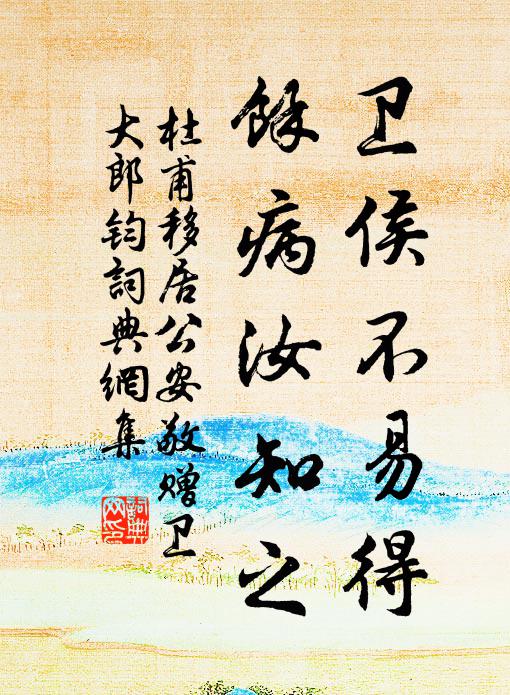 卫侯不易得
馀病汝知之
杜甫移居公安敬赠卫
大郎钧詞典網集